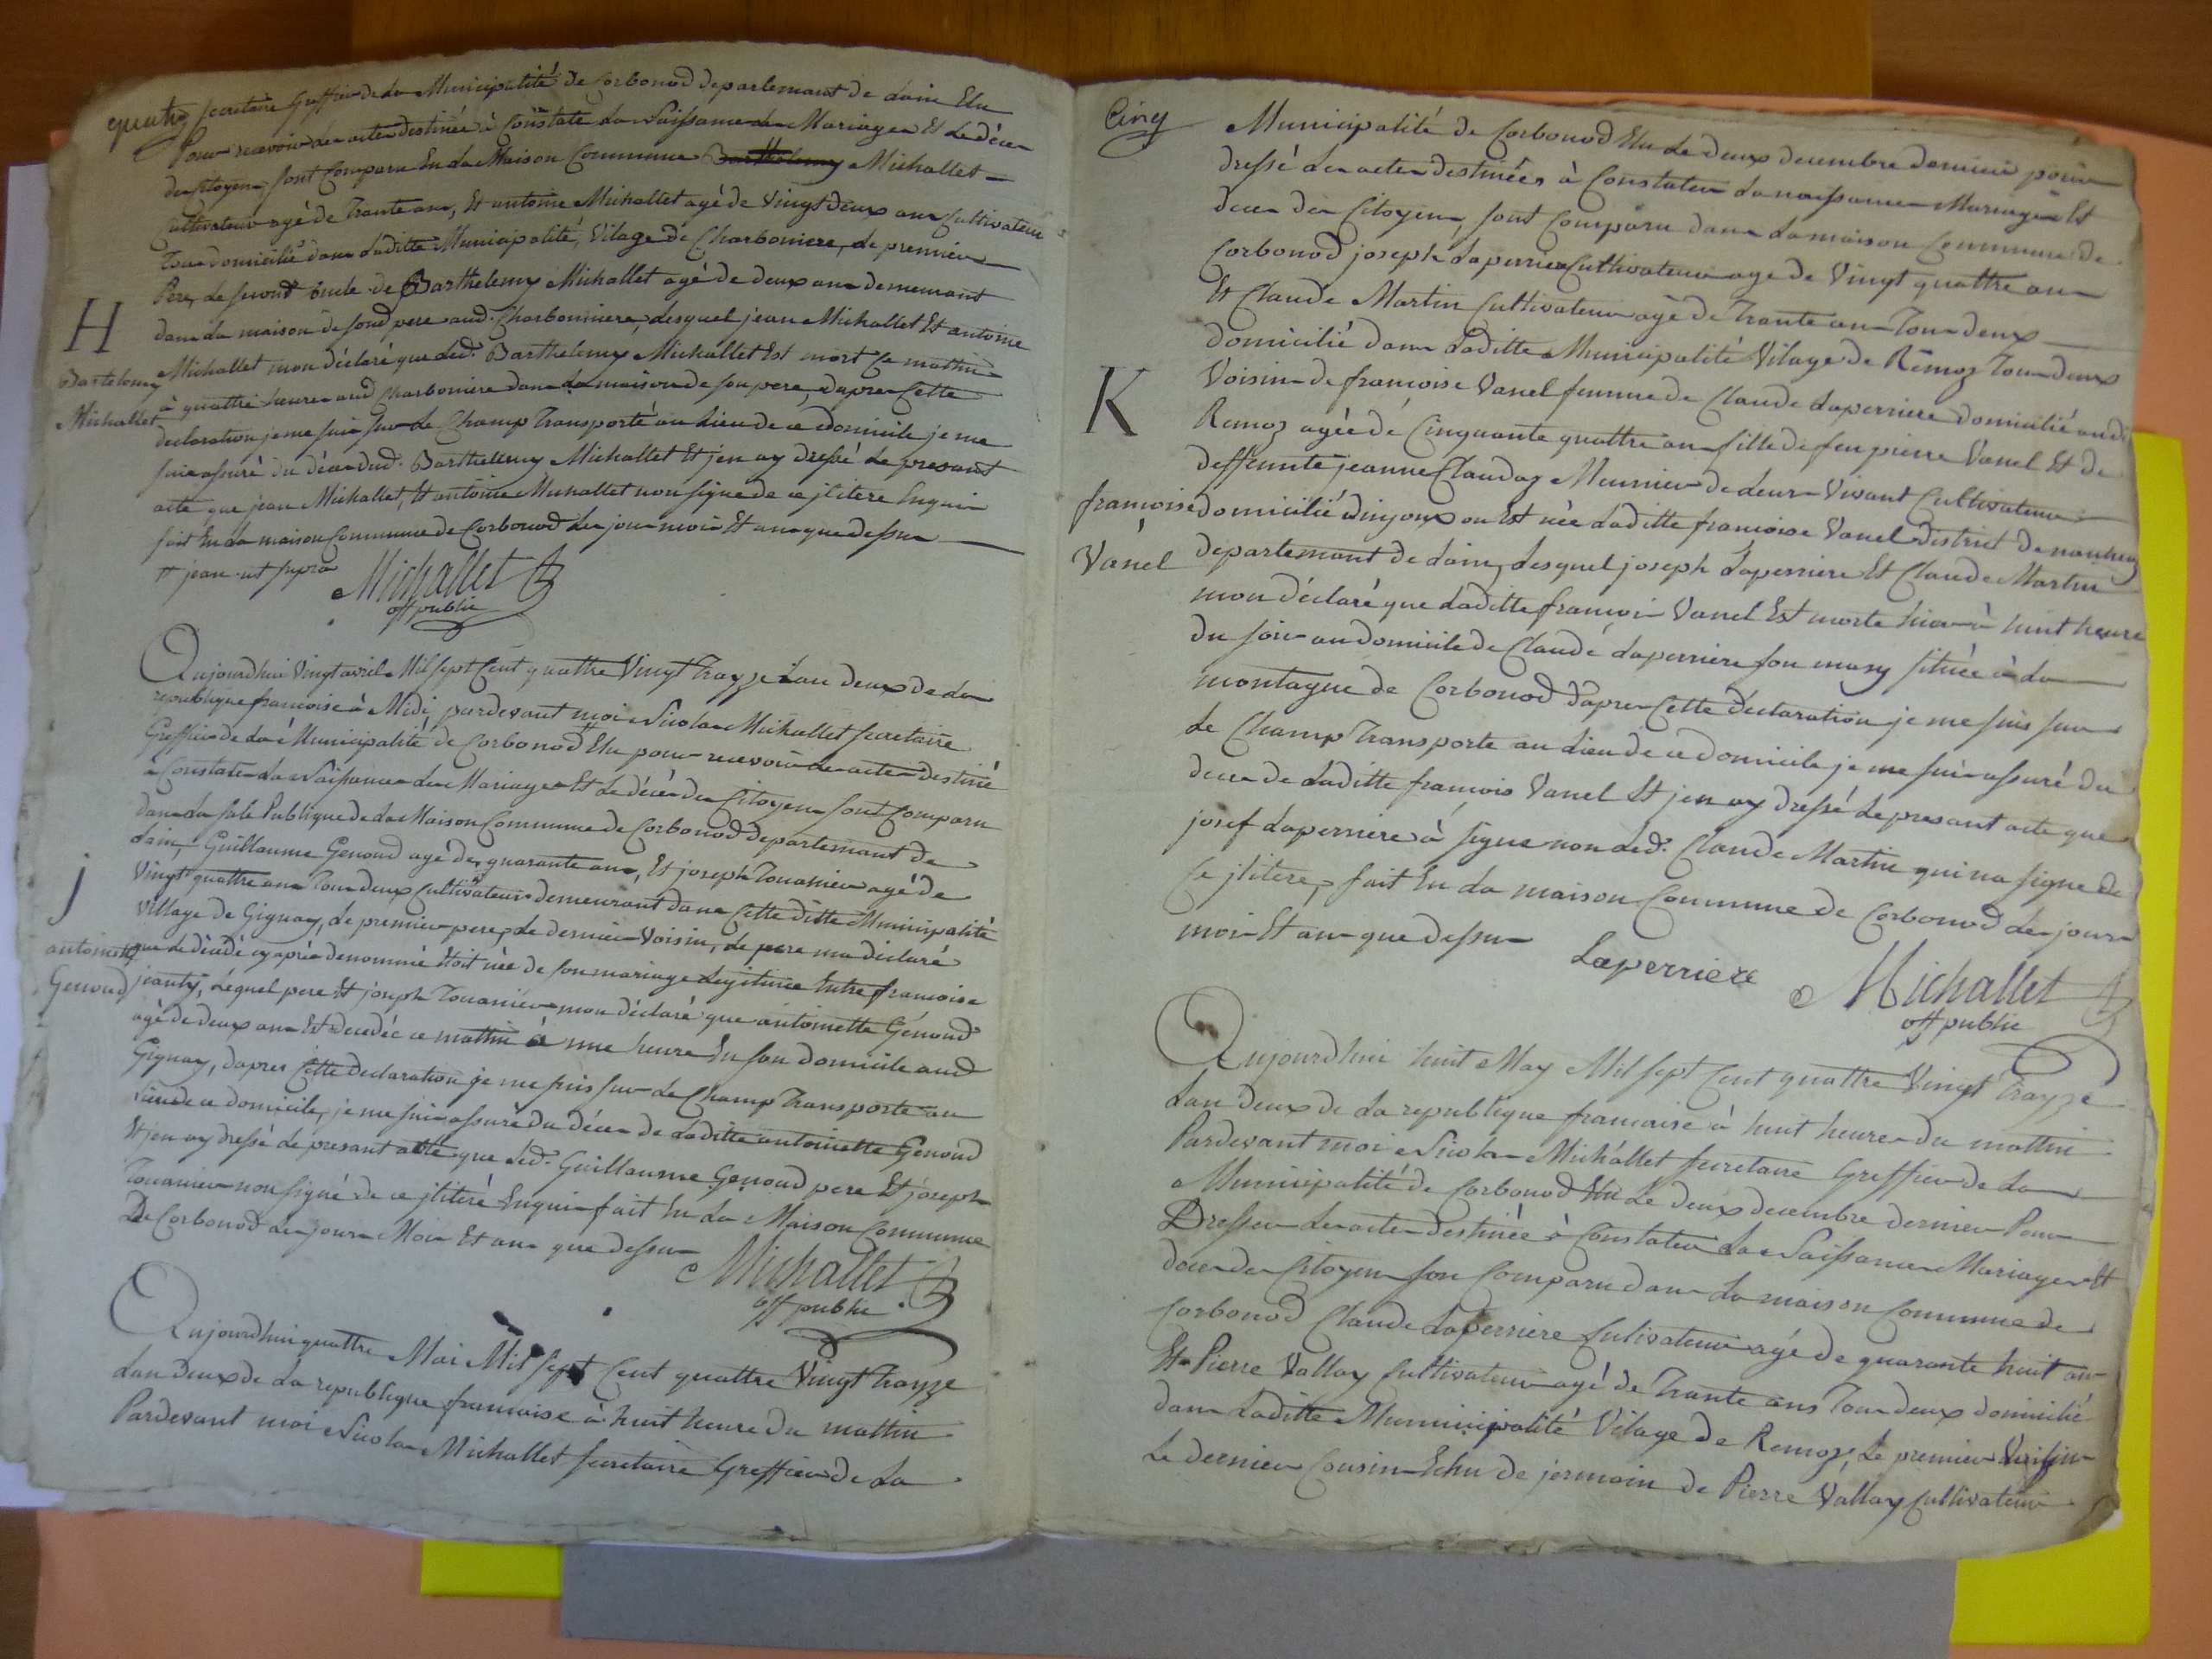 quatre
secretaire Greffier de la Municipalité de Corbonod departement de dain Elu
Pour recevoir les actes destinée à Constate la Naissance les Mariages Et le déces
des Citoyens, sont Comparu En la Maison Commune Barthelemy Michallet
Cultivateur agé de Trante ans, Et antoine Michallet agé de Vingt deux ans Cultivateur
Tous domicilié dans laditte Municipalité, Vilage de Charboniere, le premier
Pere, le second oncle de Barthelemy Michallet agé de deux ans demeurant
dans la maison de sond pere aud. Charbonniere, lesquel jean Michallet Et antoine
Michallet mon déclaré que led. Barthelemy Michallet Est mort ce mattin
à quattre heures aud Charboniere dans la maison de son pere, dapres Cette
declaration je me suis sur le Champ Transporté au lieu de ce domicile je me
suis assuré du déces dud. Barthellemy Michallet Et jen ay dressé le presant
acte que jean Michallet, Et antoine Michallet non signe de ce jlitere Enquis
fait En la maison Commune de Corbonod les jour mois Et ans que dessus
jean ut supra
Michallet
off public
H
Bartelemy
Michallet
Aujourdhui Vingt avril Mil sept Cent quattre Vingt Trayze Lan deux de la
republique francoise à Midi, pardevant moi Nicolas Michallet secretaire
Greffier de la Municipalité de Corbonod Elu pour recevoir les actes destiné
à Constate la Naissance les Mariages Et le décés des Citoyens sont Comparu
dans la sale Publique de la Maison Commune de Corbonod departement de
dain, Guillaume Genoud agé de quarante ans, Et joseph Touanier agé de
Vingt quattre ans Tous deux Cultivateur demeurant dans Cette ditte Municipalité
Village de Gignay, le premier pere, le dernier Voisin, le pere ma déclaré
que le décédé cy aprés denommé Etoit née de son mariage Legitime Entre francoise
jeanty, Lequel pere Et joseph Touanier mon déclaré que antoinette Genoud
agé de deux ans Est decedée ce mattin à une heure En son domicile aud
Gignay, dapres Cette declaration je me suis sur le Champ Transporte au
Lieu de ce domicile, je me suis assuré du déces de laditte antoinette Genoud
Et jen ay dressé le presant acte que led. Guillaume Genoud pere Et joseph
Touanier non signé de ce jliteré Enquis fait En la Maison Commune
De Corbonod les jours Mois Et ans que dessus
Michallet
off public
j
antoinette
Genoud
Aujourdhui quattre Mai Mil sept Cent quattre Vingt Trayze
Lan deux de la republique francoise à huit heures du mattin
Pardevant moi Nicolas Michallet secretaire Greffier de la
Cinq
Municipalité de Corbonod Elu le deux decembre dernier pour
dressé les actes destinées à Constater la naissances Mariages Et
deces des Citoyens, sont Comparu dans la maison Commune de
Corbonod joseph Laperriere Cultivateur age de Vingt quattre ans
Et Claude Martin Cultivateur agé de Trante ans Tous deux
domicilié dans Laditte Municipalité Vilage de Remoz Tous deux
Voisins de francoise Vanel femme de Claude Laperriere domicilié aud.
Remoz agée de Cinquante quattre ans fille de feu pierre Vanel Et de
deffeunte jeanne Clauday Meunier de leurs Vivant Cultivateur
domicilié dinjoux ou Est née Laditte francoise Vanel District de nantua
departemant de dain, Lesquel joseph Laperriere Et Claude Martin
mon déclaré que Laditte francois Vanel Est morte hier à huit heures
du soir au domicile de Claude Laperriere son mary située à la
montagne de Corbonod dapres Cette declaration je me suis sur
Le Champ Transporte au Lieu de ce domicile je me suis assuré du
deces de Laditte francois Vanel Et jen ay dressé le presant acte que
josef Laperriere à signe non led. Claude Martin qui na signe de
Ce jlitere, fait En la maison Commune de Corbonod les jours
mois Et ans que dessus
Laperriere
Michallet
off public
K
francoise
Vanel
Aujourdhui huit May Mil sept Cent quattre Vingt Trayze
Lan deux de la republique francaise à huit heures du mattin
Pardevant moi Nicolas Michallet secretaire Greffier de La
Municipalité de Corbonod Elu Le deux decembre dernier Pour
Dresser les actes destinée à Constater La Naissance Mariages Et
deces des Citoyens son Comparu dans La maison Commune de
Corbonod Claude Laperriere Cultivateur agé de quarante huit ans
Et Pierre Vallay Cultivateur agé de Trante ans Tous deux domicilié
dans Laditte Municipalité Vilage de Remoz, Le premier Voisin
Le dernier Cousin de jermain de Pierre Vallay Cultivateur